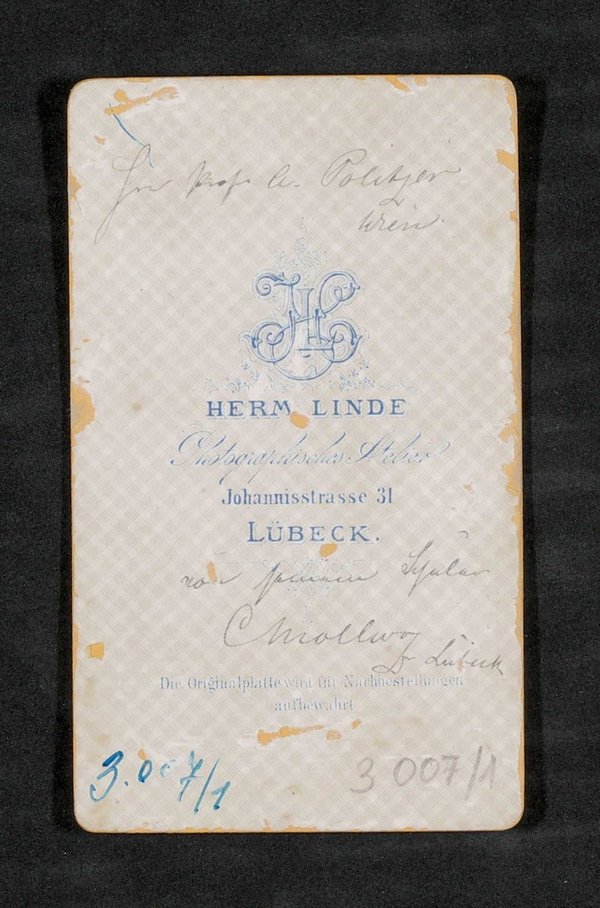 Hrn Prof. A. Politzer
Wien.
HL
HERM. LINDE
Photographisches Atelier
Johannisstrasse 31
LÜBECK.
von seinem Schüler
CMollwo
Dr Lübeck
Die Originalplatte wird für Nachbestellungen
aufbewahrt
3.007/1
3 007/1